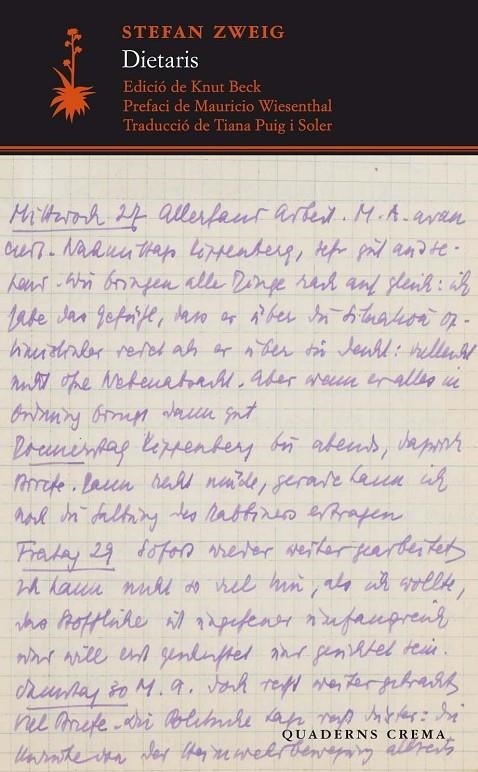 STEFAN ZWEIG
Dietaris
Edició de Knut Beck
Prefaci de Mauricio Wiesenthal
Traducció de Tiana Puig i Soler
Mittwoch 27 Allerhand Arbeit. M. A. avan
ciert. Nachmittags Kippenberg, sehr gut ausse-
hend. Wir bringen alle Dinge rasch auf gleich: ich
habe das Gefühl, dass er über die Situation op-
timistischer redet als er über sie denkt: vielleicht
nicht ohne Nebenabsicht. Aber wenn er alles in
Ordnung bringt dann gut
Donnerstag Kippenberg bis abends, dazwisch
Briefe. Dann recht müde, gerade kann ich
noch die des Rabbiners ertragen
Freitag 29 Sofort wieder weiter gearbeitet
Ich kann nicht so viel hin, als ich wollte,
das Stoffliche ist ungeheuer umfangreich
und will erst gesichtet sein.
Samstag 30 M. A. doch recht weiter gebracht
Viel Briefe. Die Politische Lage recht düster: die
der Heimwehrbewegung
QUADERNS CREMA